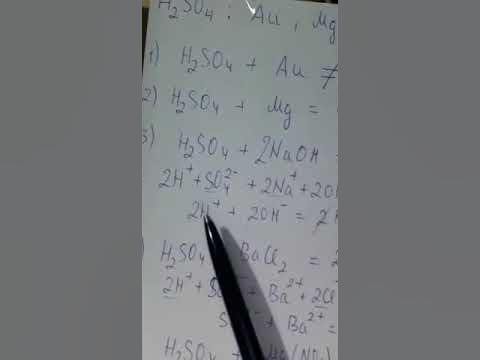 H₂SO₄ : Au, Mg
1) H₂SO₄ + Au ≠
2) H₂SO₄ + Mg =
3) H₂SO₄ + 2NaOH
2H⁺ + SO₄²⁻ + 2Na⁺ + 2OH
2H⁺ + 2OH⁻ = 2H
) H₂SO₄ BaCl₂ = 2
2H⁺ + S + Ba²⁺ + 2Cl⁻
S ⁻ + Ba²⁺ =
H₂SO₄ +